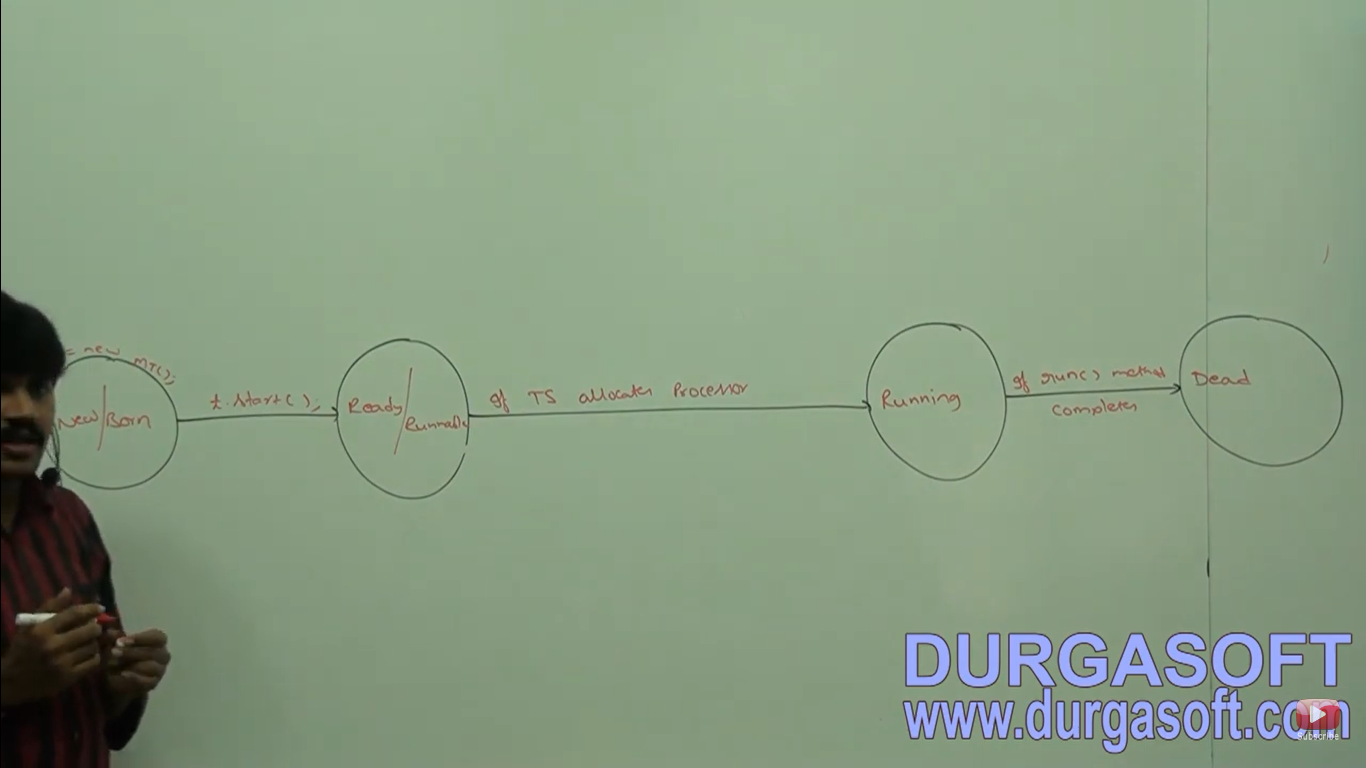 = new MT();
New/Born
t.start();
Ready/
Runnable
If TS allocates Processor
Running
If run() method
completes
Dead
DURGASOFT
www.durgasoft.com
Subscribe